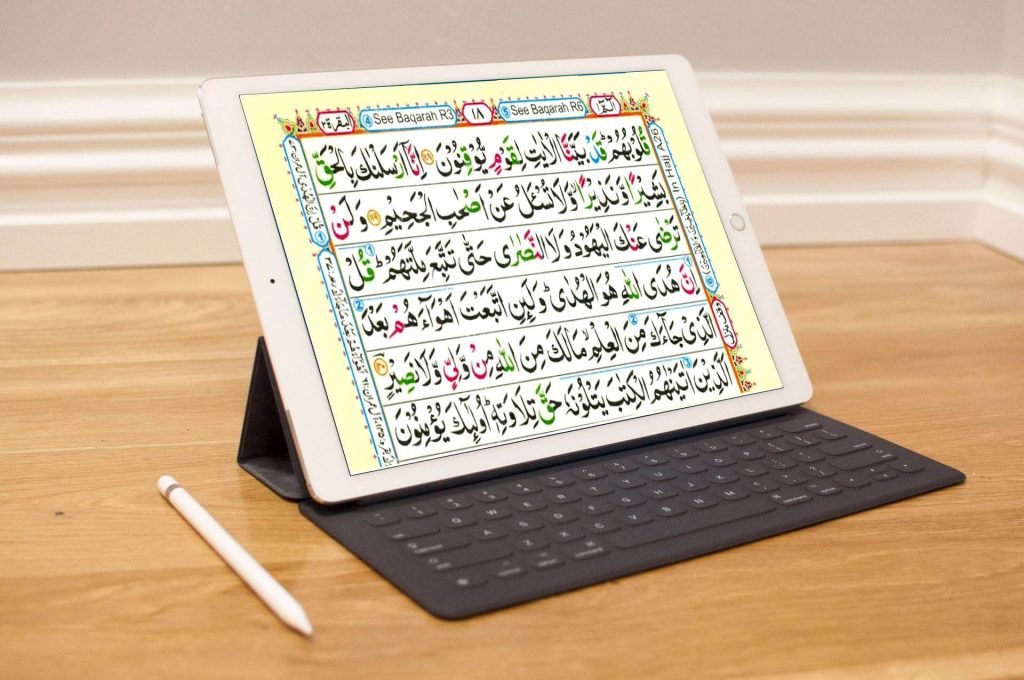 البقرة ٢ 4 See Baqarah R3 ١٨ 5 See Baqarah R6
قُلُوْبُهُمْ ؕ قَدْ بَيَّنَّا الْاٰيٰتِ لِقَوْمٍ يُّوْقِنُوْنَ ﴿١١٨﴾ اِنَّاۤ اَرْسَلْنٰكَ بِالْحَقِّ
بَشِيْرًا وَّ نَذِيْرًا ۙ وَّ لَا تُسْـَٔلُ عَنْ اَصْحٰبِ الْجَحِيْمِ ﴿١١٩﴾ وَ لَنْ
تَرْضٰى عَنْكَ الْيَهُوْدُ وَ لَا النَّصٰرٰى حَتّٰى تَتَّبِعَ مِلَّتَهُمْ ؕ قُلْ
اِنَّ هُدَى اللّٰهِ هُوَ الْهُدٰى ؕ وَ لَئِنِ اتَّبَعْتَ اَهْوَآءَهُمْ بَعْدَ
الَّذِيْ جَآءَكَ مِنَ الْعِلْمِ ۙ مَا لَكَ مِنَ اللّٰهِ مِنْ وَّلِيٍّ وَّ لَا نَصِيْرٍ ﴿١٢٠﴾
اَلَّذِيْنَ اٰتَيْنٰهُمُ الْكِتٰبَ يَتْلُوْنَهٗ حَقَّ تِلَاوَتِهٖ ؕ اُولٰٓئِكَ يُؤْمِنُوْنَ
In Hajj A26